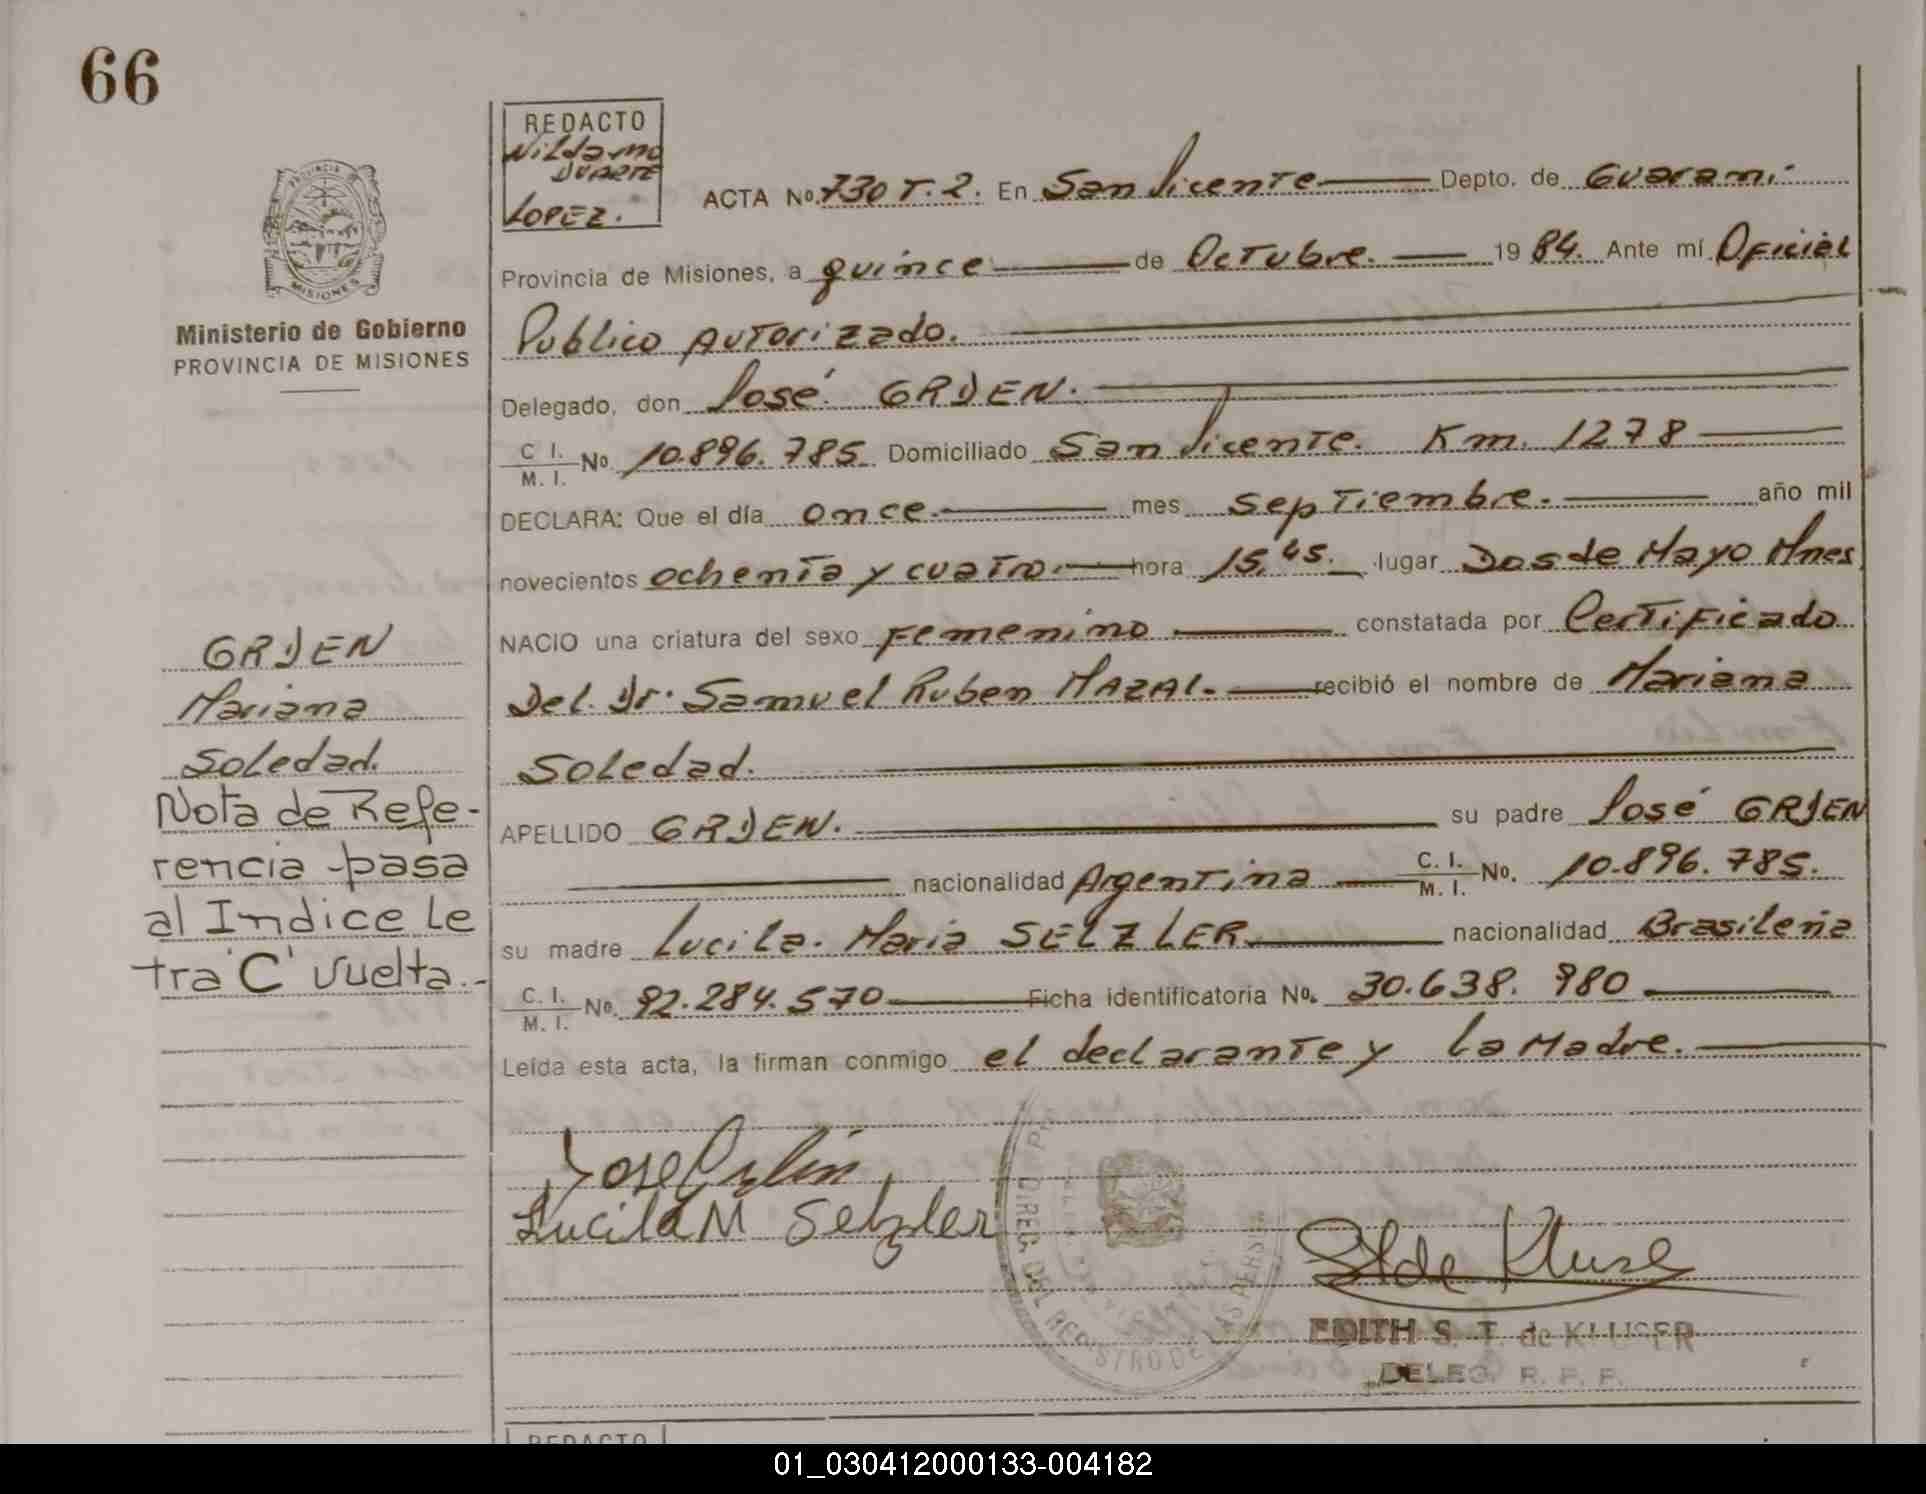 66
REDACTO
Nildamo
DUARTE
LOPEZ.
ACTA No. 730 T. 2. En San Vicente Depto. de Guarani
Provincia de Misiones, a quince de Octubre. 1984. Ante mí Oficial
Publico Autorizado.
Delegado, don José GRJEN.
C. I. / M. I. No. 10.896.785 Domiciliado San Vicente. Km. 1278
DECLARA: Que el día once. mes septiembre. año mil
novecientos ochenta y cuatro. hora 15,45. lugar Dos de Mayo Mnes
NACIO una criatura del sexo Femenino constatada por Certificado
Del. Dr. Samuel Ruben MAZAL. recibió el nombre de Mariana
Soledad.
APELLIDO GRJEN. su padre José GRJEN
nacionalidad Argentina C. I. / M. I. No. 10.896.785.
su madre Lucila. Maria SELZLER nacionalidad Brasileña
C. I. / M. I. No. 92.284.570 Ficha identificatoria No. 30.638.980
Leída esta acta, la firman conmigo el declarante y la Madre.
PROVINCIA
MISIONES
Ministerio de Gobierno
PROVINCIA DE MISIONES
GRJEN
Mariana
Soledad.
Nota de Refe-
rencia -pasa
al Indice Le
tra "C" vuelta.-
Lucila M Selzler
DIREC. DEL REGISTRO DE LAS PERS
EDITH S. T. de KLUSER
DELEG. R. P. P.
REDACTO
01_030412000133-004182